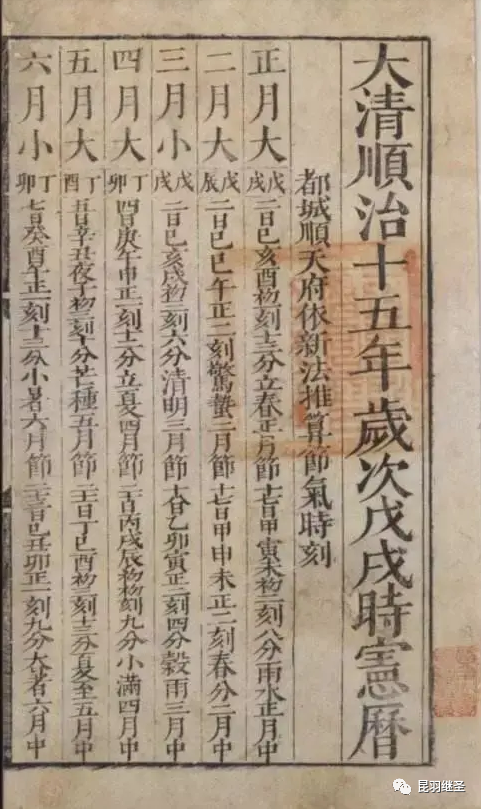 大清順治十五年歲次戊戌時憲曆
都城順天府依新法推算節氣時刻
正月大 戊戌 二日己亥酉初刻十三分立春正月節 十七日甲寅未初二刻八分雨水正月中
二月大 戊辰 二日己巳午正二刻驚蟄二月節 十七日甲申未正二刻春分二月中
三月小 戊戌 二日己亥戌初三刻六分清明三月節 十八日乙卯寅正二刻四分穀雨三月中
四月大 丁卯 四日庚午申正一刻十二分立夏四月節 二十日丙戌辰初初刻九分小滿四月中
五月大 丁酉 五日辛丑夜子初三刻十分芒種五月節 二十一日丁巳酉初三刻十三分夏至五月中
六月小 丁卯 七日癸酉午正一刻十三分小暑六月節 二十三日己丑卯正一刻九分大暑六月中
昆羽继圣